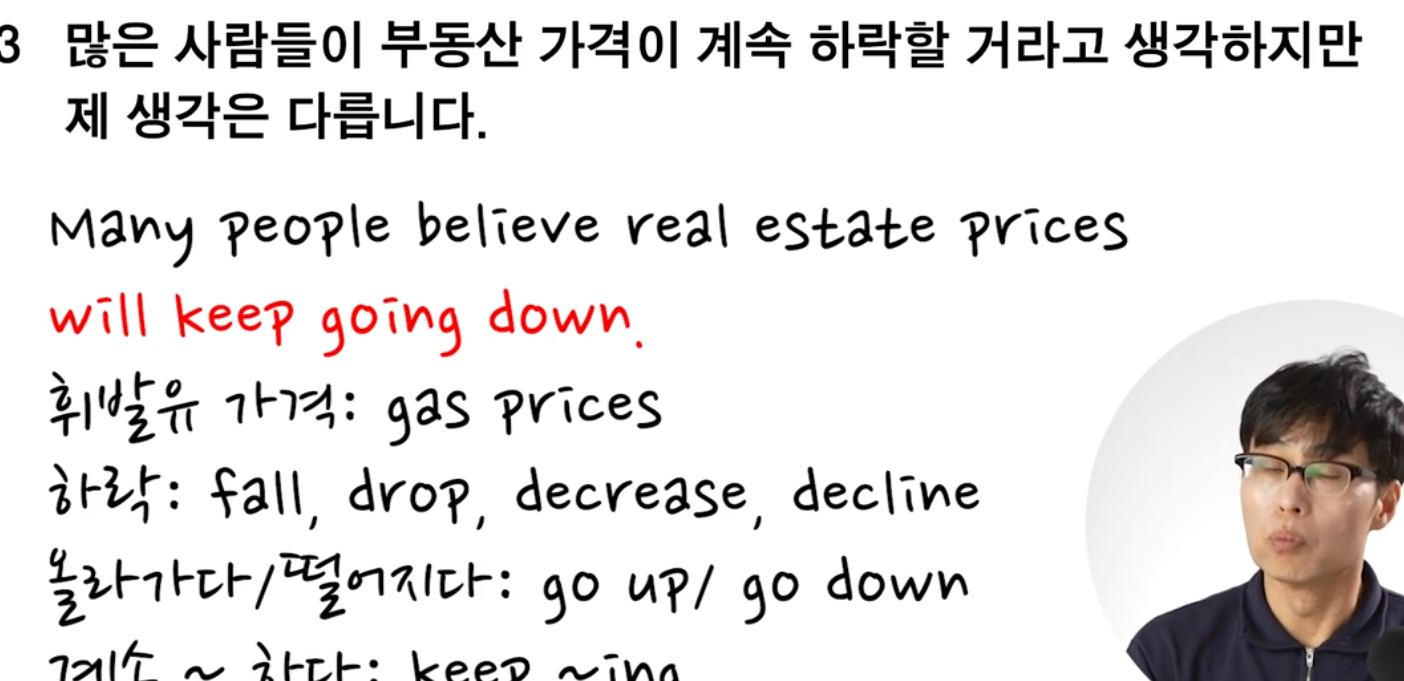 3 많은 사람들이 부동산 가격이 계속 하락할 거라고 생각하지만
제 생각은 다릅니다.
Many people believe real estate prices
will keep going down.
휘발유 가격: gas prices
하락: fall, drop, decrease, decline
올라가다/떨어지다: go up/ go down
계속 ~ 하다: keep ~ing